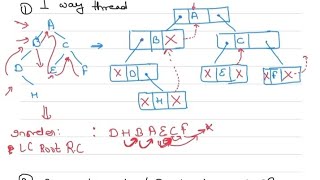 ① 1 way thread
A
A
B
C
B X
C
D
E
F
X D
X E X
X F
H
X H X
Inorder: D H B A E C F X
LC Root R.C